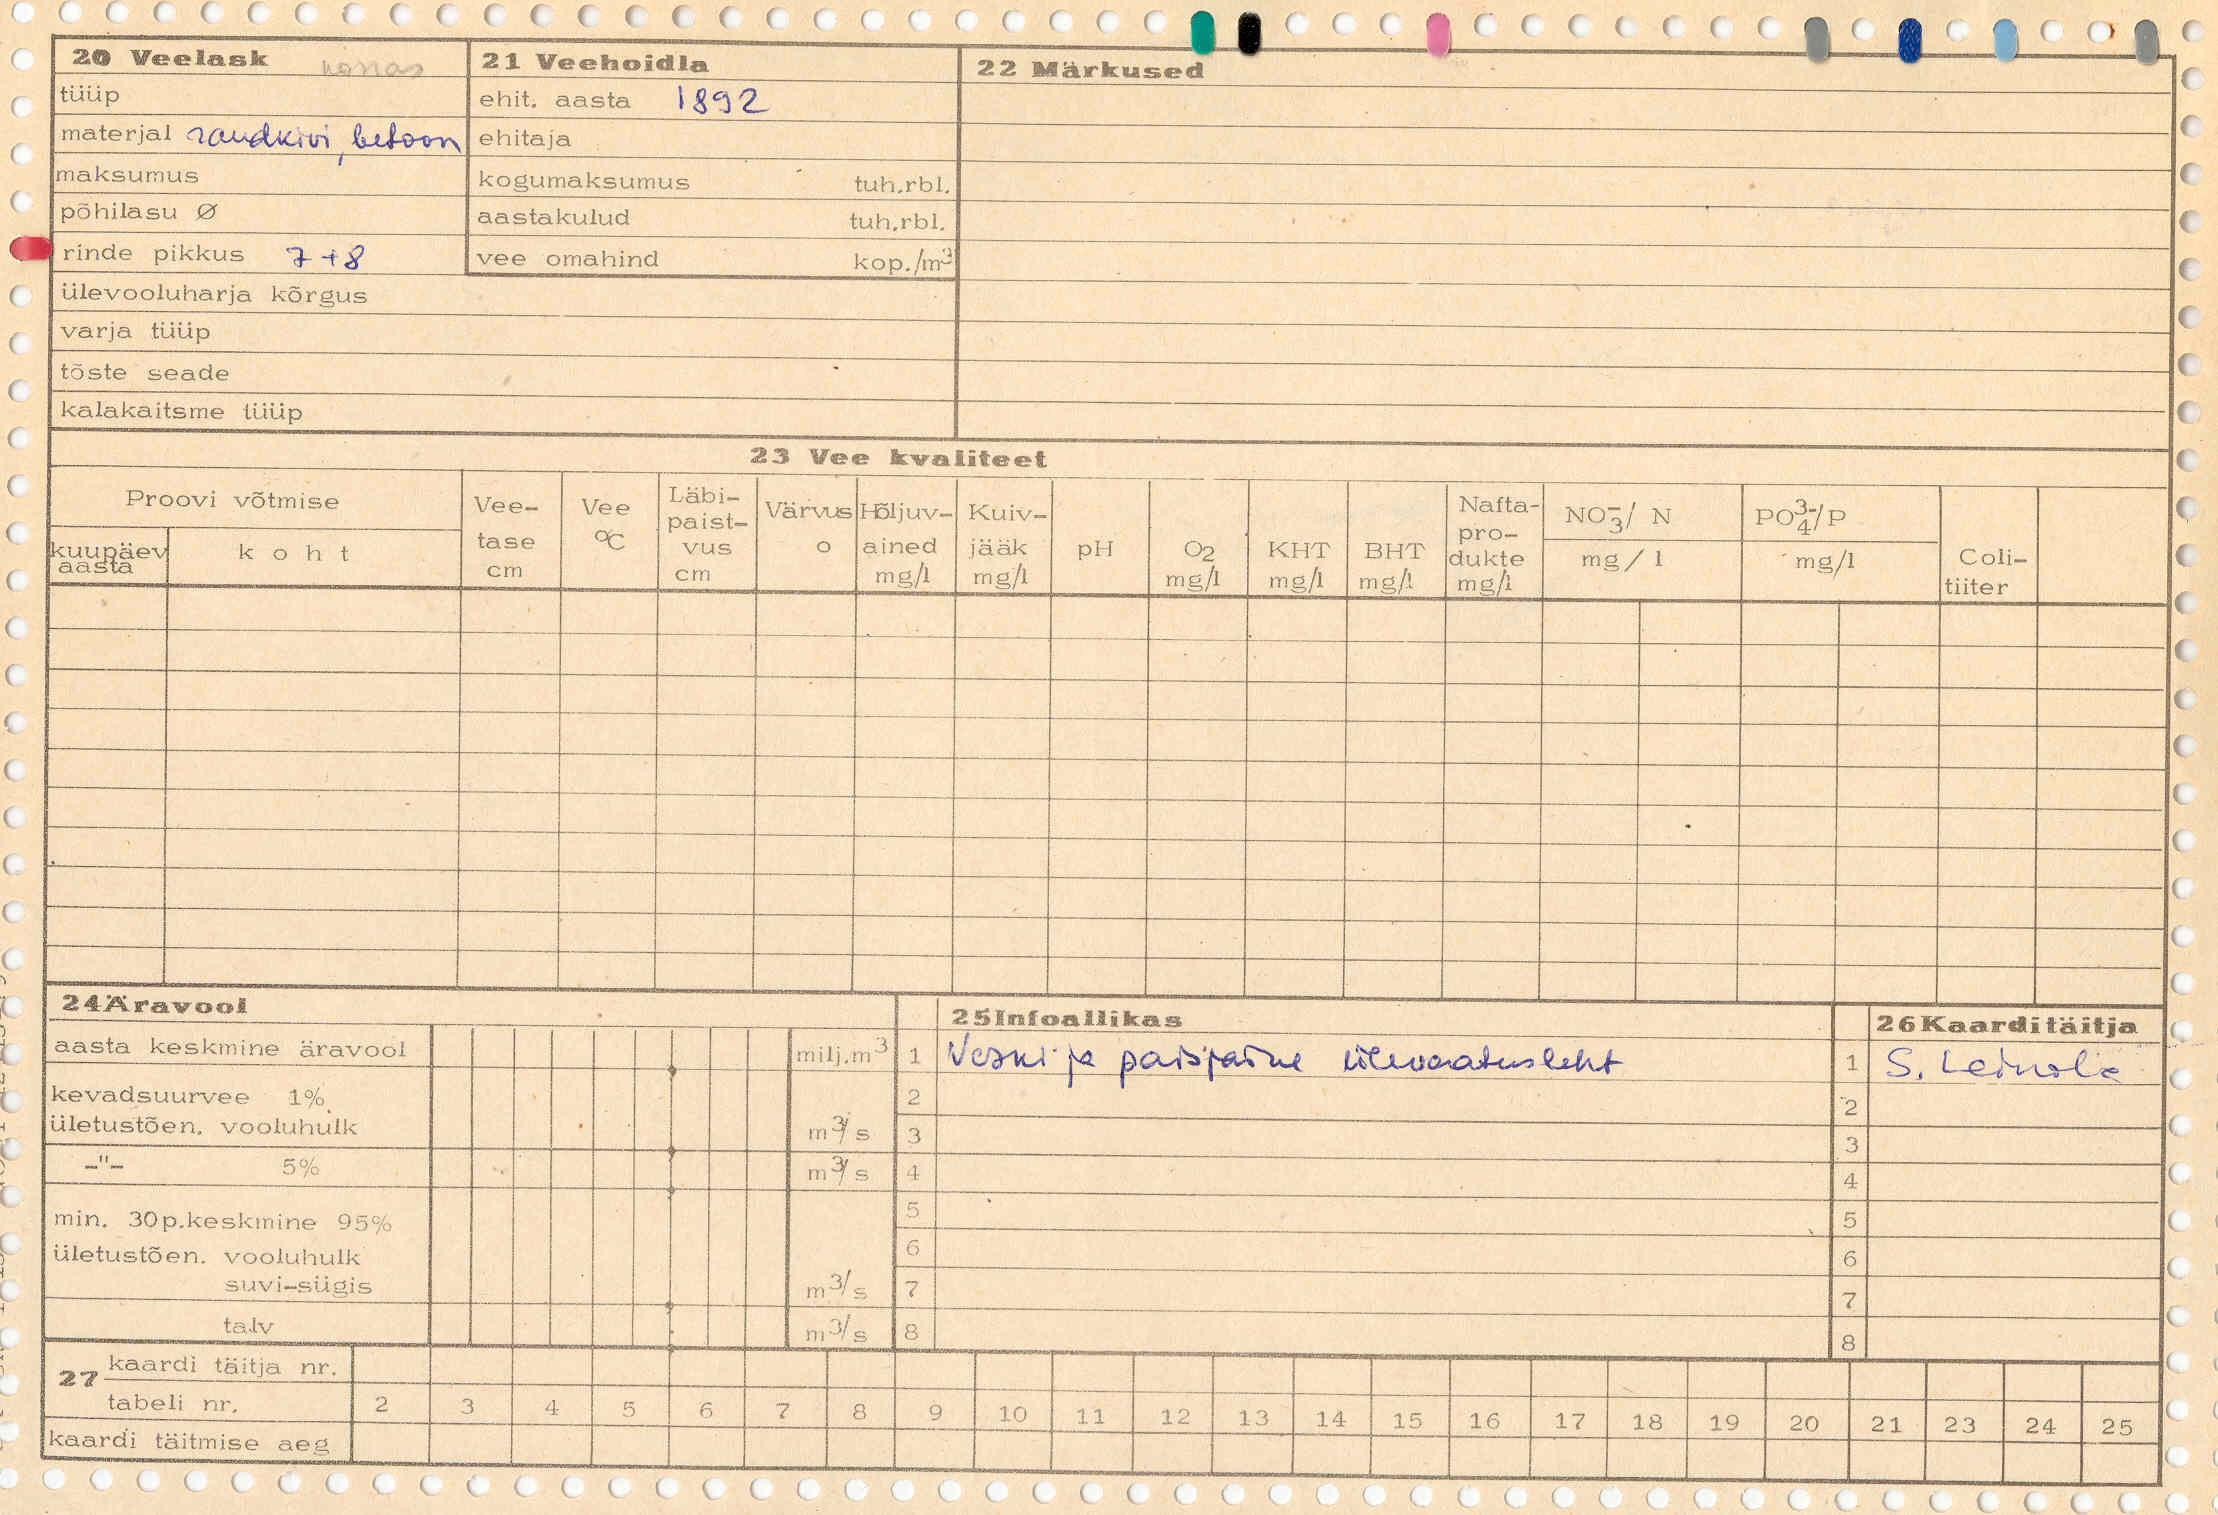 20 Veelask korras
tüüp
materjal raudkivi, betoon
maksumus
põhilasu Ø
rinde pikkus 7+8
ülevooluharja kõrgus
varja tüüp
tõste seade
kalakaitsme tüüp
21 Veehoidla
ehit. aasta 1892
ehitaja
kogumaksumus tuh.rbl.
aastakulud tuh.rbl.
vee omahind kop./m³
22 Märkused
23 Vee kvaliteet
Proovi võtmise
kuupäev
aasta
koht
Vee-
tase
cm
Vee
°C
Läbi-
paist-
vus
cm
Värvus
o
Hõljuv-
ained
mg/l
Kuiv-
jääk
mg/l
pH
O2
mg/l
KHT
mg/l
BHT
mg/l
Nafta-
pro-
dukte
mg/l
NO₃⁻/ N
mg / l
PO₄³⁻/P
mg/l
Coli-
tiiter
24 Äravool
aasta keskmine äravool milj.m³
kevadsuurvee 1%
ületustõen. vooluhulk m³/s
-"- 5% m³/s
min. 30p.keskmine 95%
ületustõen. vooluhulk
suvi-sügis m³/s
talv m³/s
25 Infoallikas
1 Veski ja paisjärve ülevaatusleht
2
3
4
5
6
7
8
26 Kaarditäitja
1 S. Leinola
2
3
4
5
6
7
8
27 kaardi täitja nr.
tabeli nr. 2 3 4 5 6 7 8 9 10 11 12 13 14 15 16 17 18 19 20 21 23 24 25
kaardi täitmise aeg